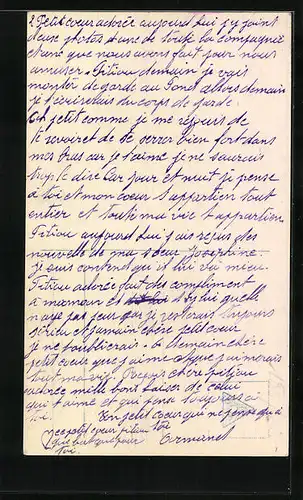 2 Petit cœur adorée aujourd hui j y joint
deux photos d une de toute la compagnie
et une que nous avons fait pour nous
amuser. Titiou demain je vais
monter de garde au Fond alors demain
je t'ecrirai du corps de garde.
Oh petit comme je me rejouis de
te revoir et de te serrer bien fort dans
mes bras car je t'aime je ne saurais
trop te dire Car jour et nuit je pense
a toi et mon cœur t appartien tout
entier et toute ma vie t appartien
Titiou aujourd hui j ais reçus des
nouvelle de ma sœur Josephine.
je suis content qui il lui va mieu.
Titiou adorée fait des compliment
a maman et dis lui quelle
naye pas peur que je resterais toujours
et jamais chère petit cœur
je ne t'oublierais. Demain chère
petit cœur que j'aime
tout ma vie. Reçoys chère Titiou
adorée mille bons baiser de celui
qui t'aime et qui pense toujours a
toi. Ton petit cœur qui ne pense qu a
toi
petit cœur Titiou
que pour
toi. Armand